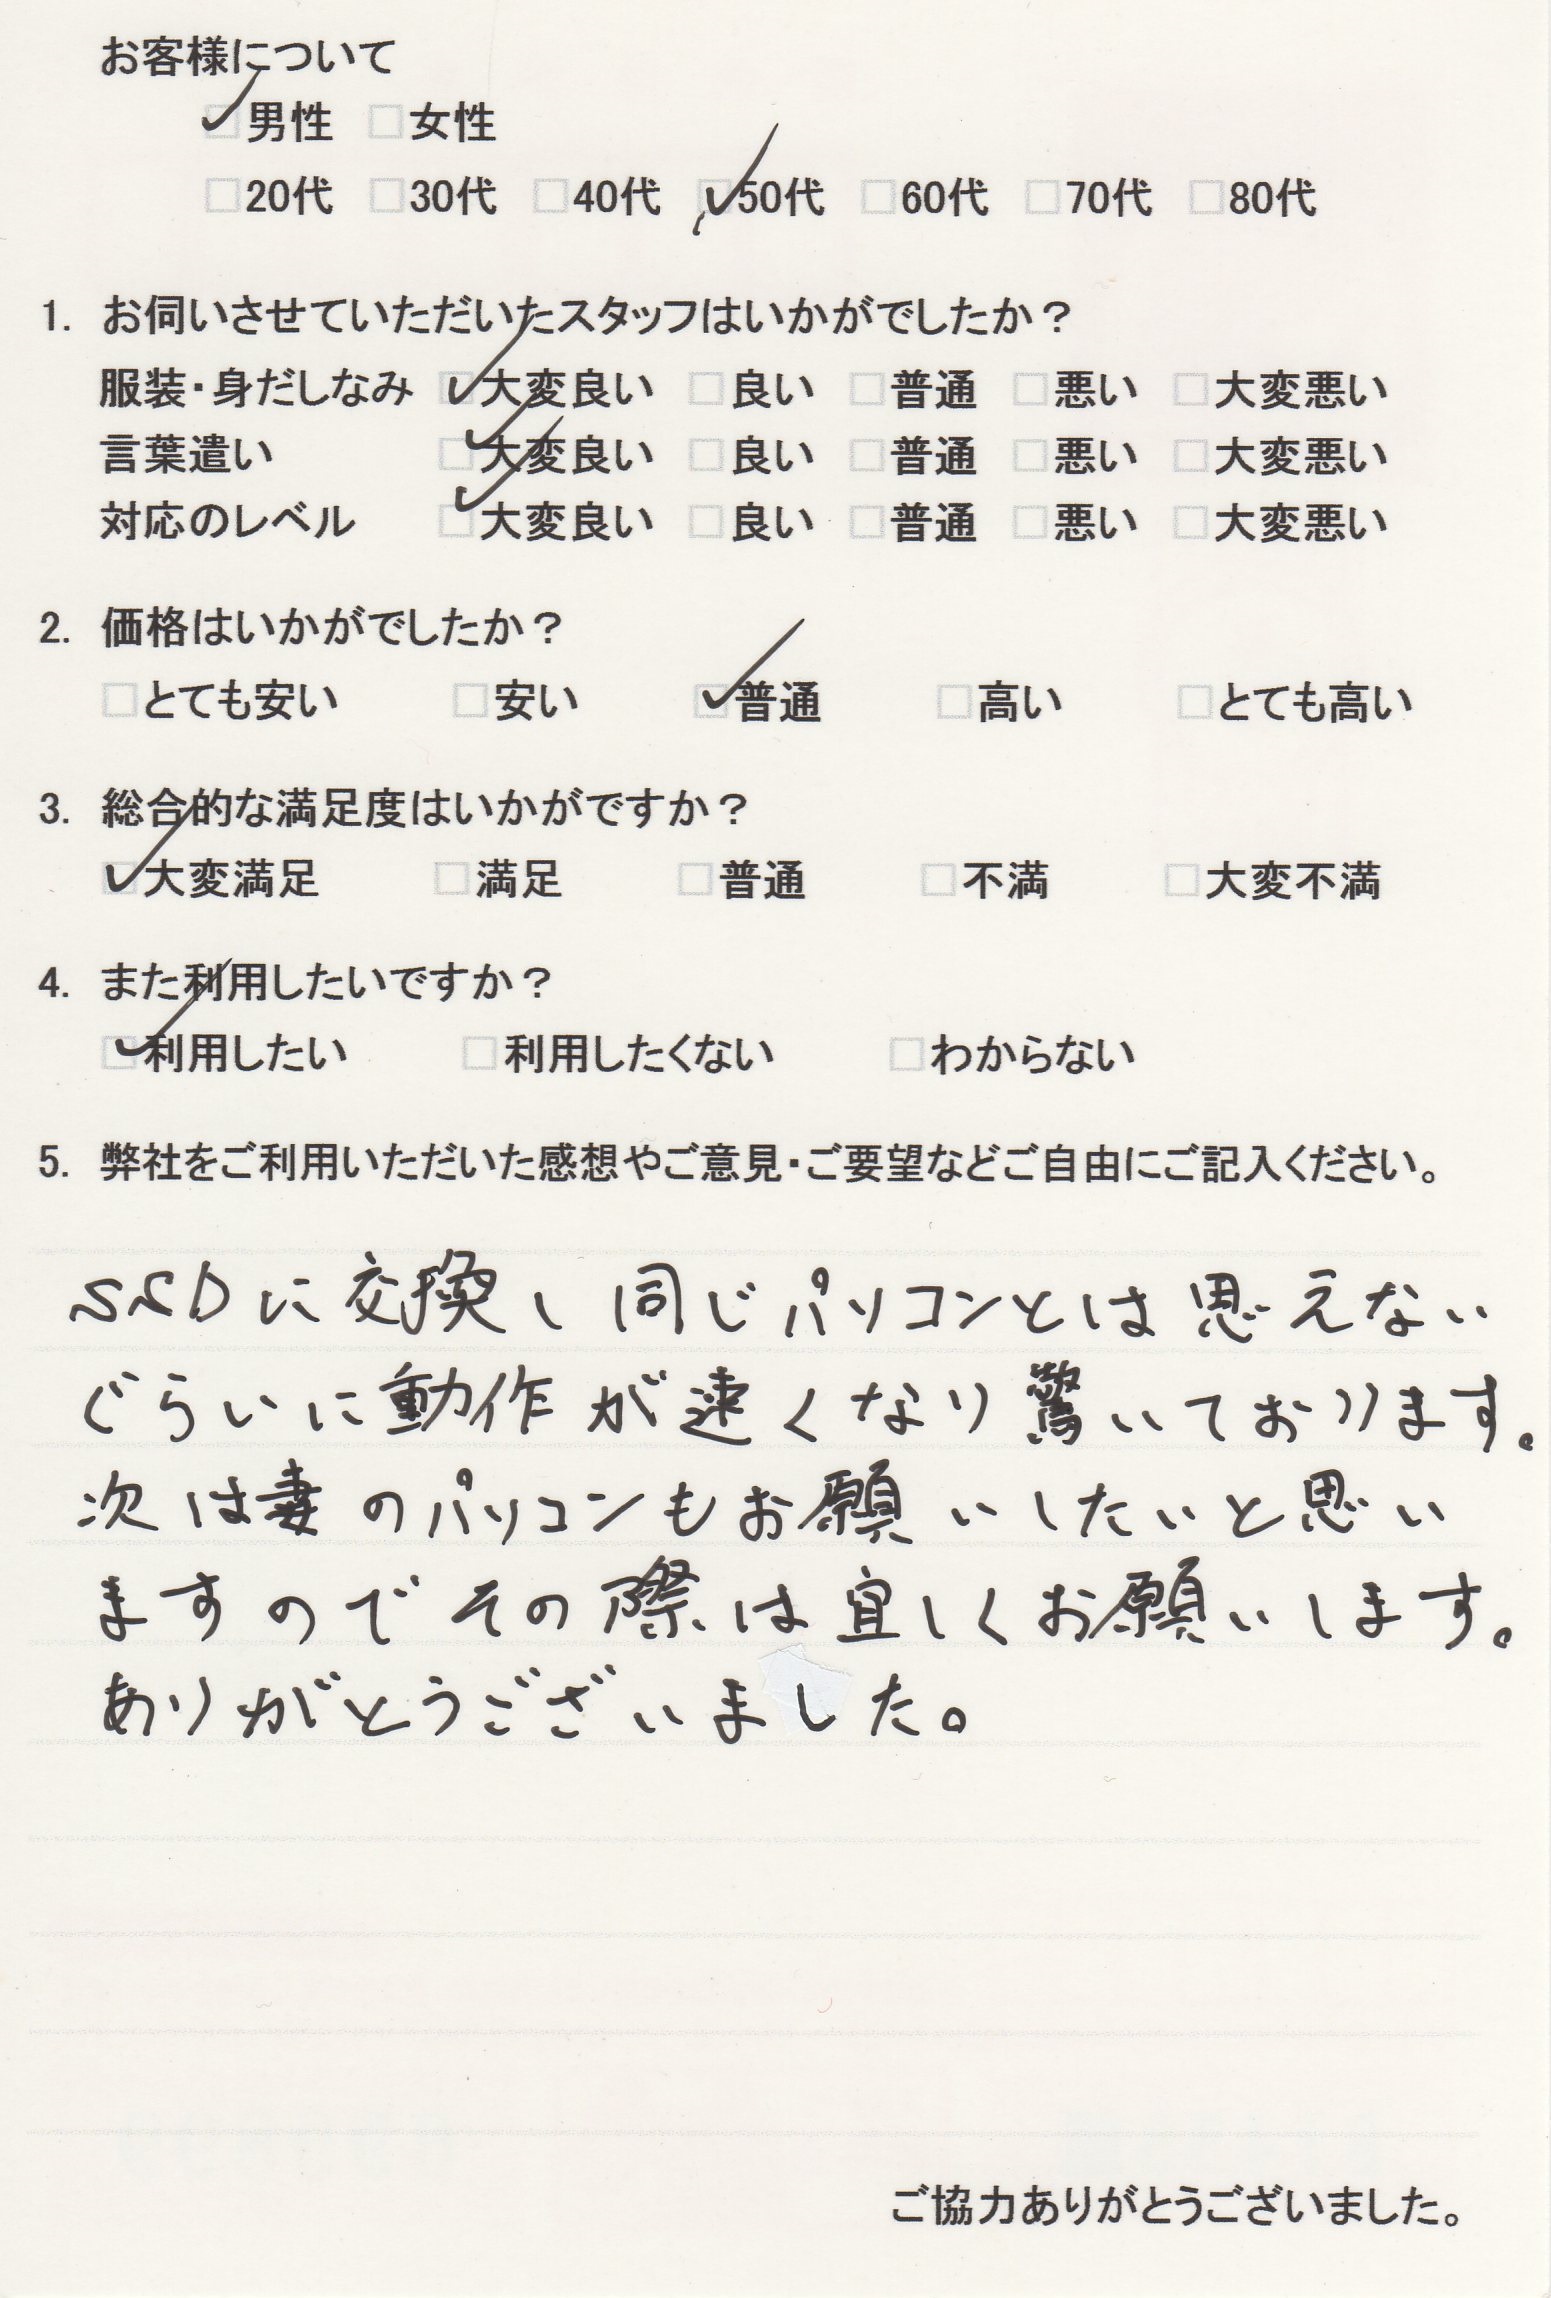 お客様について
☑男性 □女性
□20代 □30代 □40代 ☑50代 □60代 □70代 □80代
1. お伺いさせていただいたスタッフはいかがでしたか？
服装・身だしなみ ☑大変良い □良い □普通 □悪い □大変悪い
言葉遣い ☑大変良い □良い □普通 □悪い □大変悪い
対応のレベル ☑大変良い □良い □普通 □悪い □大変悪い
2. 価格はいかがでしたか？
□とても安い □安い ☑普通 □高い □とても高い
3. 総合的な満足度はいかがですか？
☑大変満足 □満足 □普通 □不満 □大変不満
4. また利用したいですか？
☑利用したい □利用したくない □わからない
5. 弊社をご利用いただいた感想やご意見・ご要望などご自由にご記入ください。
SSDに交換し同じパソコンとは思えない
ぐらいに動作が速くなり驚いております。
次は妻のパソコンもお願いしたいと思い
ますのでその際は宜しくお願いします。
ありがとうございました。
ご協力ありがとうございました。